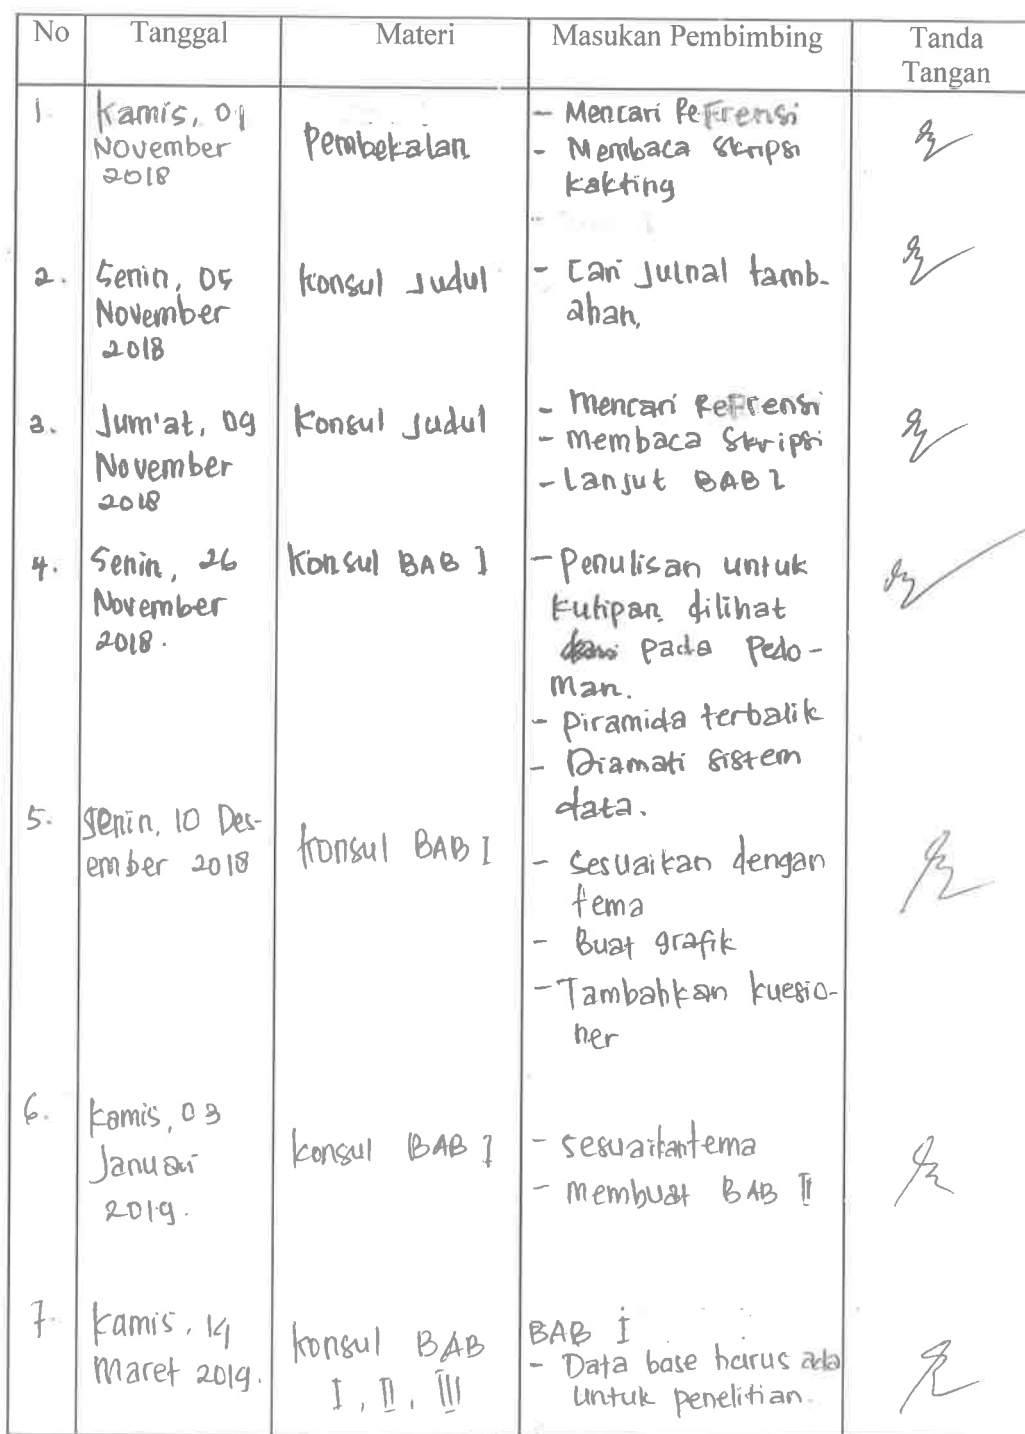 No Tanggal Materi Masukan Pembimbing Tanda
Tangan
1. Kamis, 01
November
2018
Pembekalan
- Mencari Refrensi
- Membaca Skripsi
kakting
2. Senin, 05
November
2018
Konsul Judul
- Cari Julnal tamb-
ahan,
3. Jum'at, 09
November
2018
Konsul Judul
- Mencari Refrensi
- Membaca Skripsi
- Lanjut BAB I
4. Senin, 26
November
2018.
Konsul BAB I
- Penulisan untuk
Kutipan dilihat
pada Pedo-
Man.
- Piramida terbalik
- Diamati sistem
data.
5. Senin, 10 Des-
ember 2018
Konsul BAB I
- Sesuaikan dengan
tema
- Buat grafik
- Tambahkan kuesio-
ner
6. Kamis, 03
Januari
2019.
Konsul BAB I
- Sesuaikan tema
- Membuat BAB II
7. Kamis, 14
Maret 2019.
Konsul BAB
I, II, III
BAB I
- Data base harus ada
Untuk penelitian.